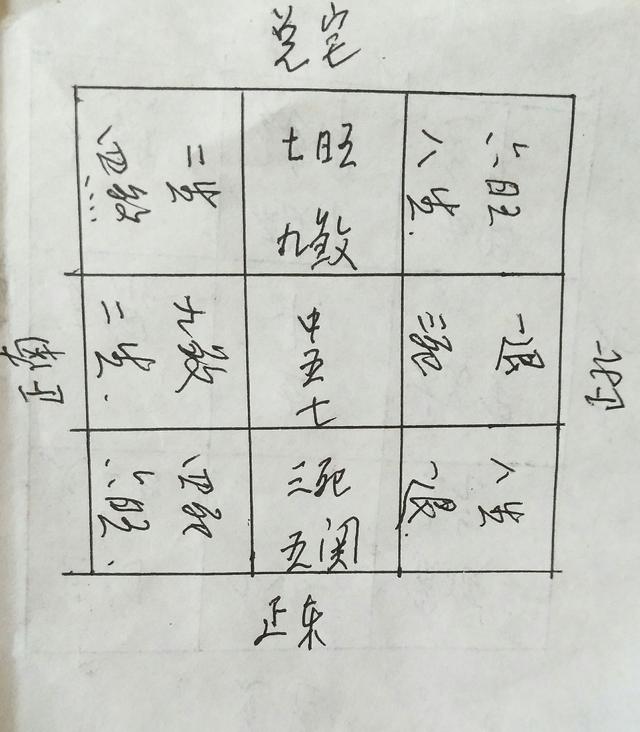 兑宅
二生
四煞
七旺
九煞
六旺
八生
正南
九煞
二生
中五七
一退
三死
正北
四死
六旺
三死
五関
八生
一退
正东